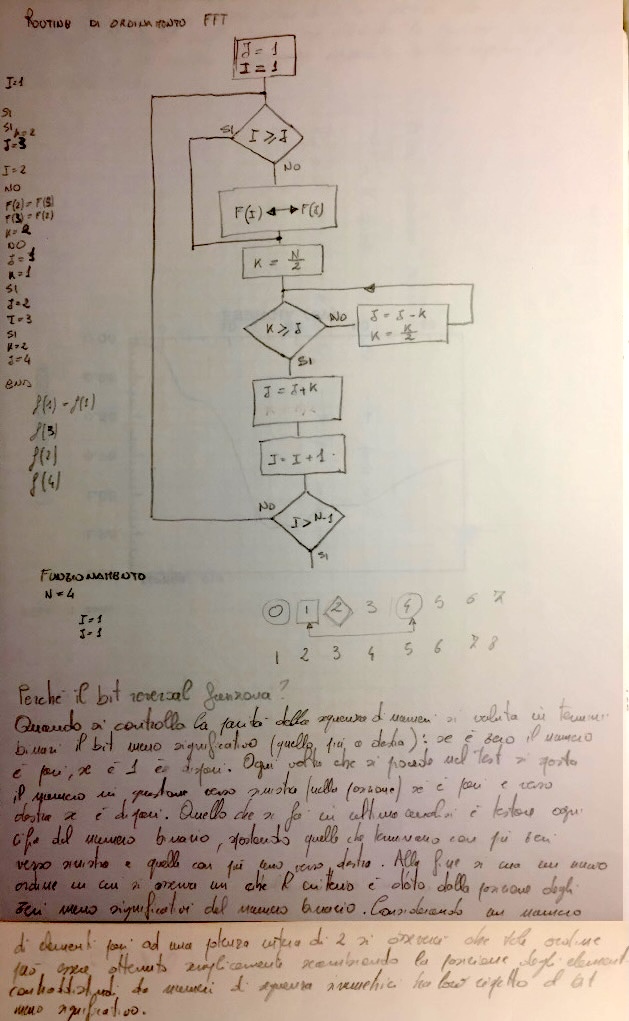 ROUTINE DI ORDINAMENTO FFT
J = 1
I = 1
I ≥ J
SI
NO
F(I) ↔ F(J)
K = N/2
K ≥ J
NO
J = J - K
K = K/2
SI
J = J + K
I = I + 1
I > N-1
NO
SI
I=1
SI
SI
K=2
J=3
I=2
NO
F(2) = F(3)
F(3) = F(2)
K=2
NO
J=1
K=1
SI
J=2
I=3
SI
K=2
J=4
END
f(1) - f(1)
f(3)
f(2)
f(4)
FUNZIONAMENTO
N = 4
I=1
J=1
0 1 2 3 4 5 6 7
1 2 3 4 5 6 7 8
Perché il bit reversal funziona?
Quando si controlla la parità della sequenza di numeri si valuta in termini
binari il bit meno significativo (quello più a destra): se è zero il numero
è pari, se è 1 è dispari. Ogni volta che si procede nel test si sposta
il numero in questione verso sinistra (nella posizione) se è pari e verso
destra se è dispari. Quello che si fa in ultima analisi è testare ogni
cifra del numero binario, spostando quelli che terminano con più zeri
verso sinistra e quelli con più uno verso destra. Alla fine si crea un nuovo
ordine in cui si osserva che il criterio è dato dalla posizione degli
zeri meno significativi del numero binario. Considerando un numero
di elementi pari ad una potenza intera di 2 si osserva che tale ordine
può essere ottenuto semplicemente scambiando la posizione degli elementi
contraddistinti da numeri di sequenza simmetrici tra loro rispetto al bit
meno significativo.